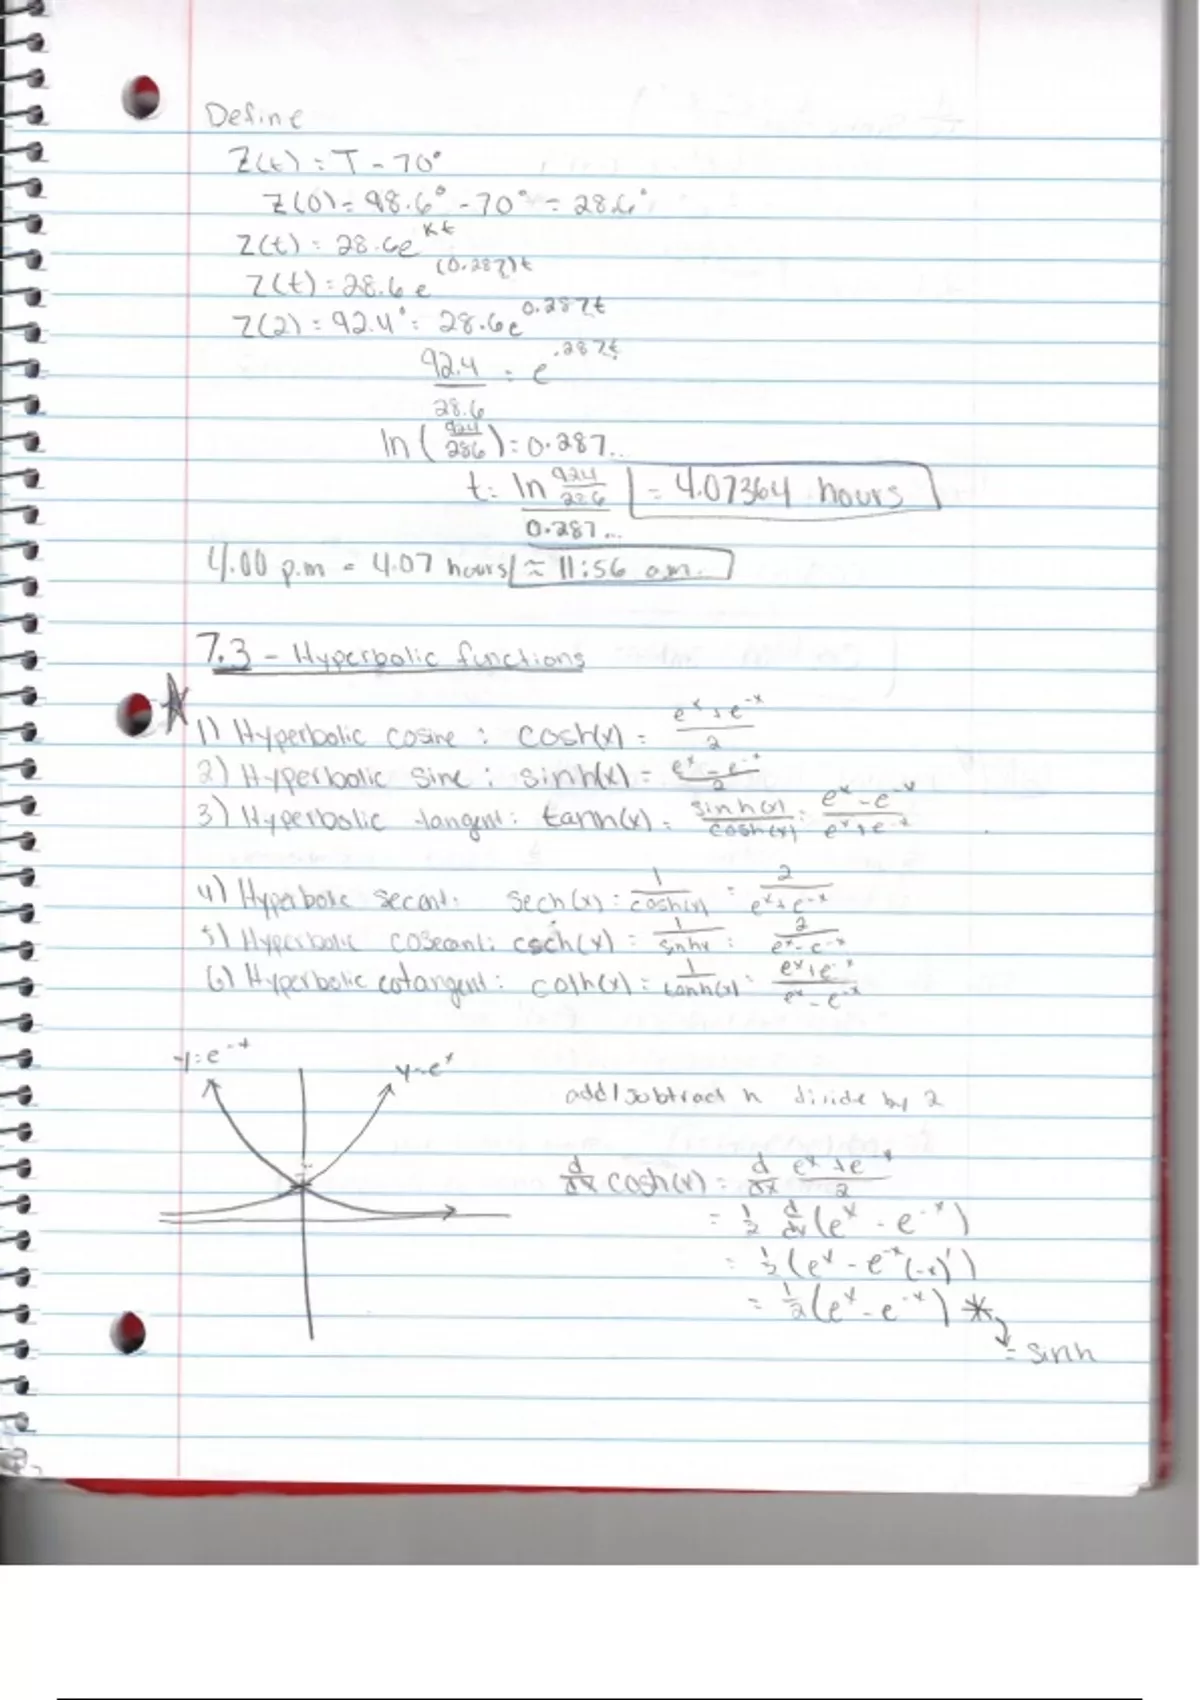 Define
Z(t) = T - 70°
Z(0) = 98.6° - 70° = 28.6°
Z(t) = 28.6e^kt
Z(t) = 28.6 e^(0.287)t
Z(2) = 92.4° = 28.6e^0.287t
92.4/28.6 = e^.287t
ln(924/286) = 0.287...
t = ln 924/286 / 0.287... = 4.07364 hours
4.00 p.m - 4.07 hours ≈ 11:56 a.m.
7.3 - Hyperbolic functions
1) Hyperbolic cosine : cosh(x) = e^x + e^-x / 2
2) Hyperbolic sine : sinh(x) = e^x - e^-x / 2
3) Hyperbolic tangent : tanh(x) = sinh(x)/cosh(x) = e^x - e^-x / e^x + e^-x
4) Hyperbolic secant : sech(x) = 1/cosh(x) = 2 / e^x + e^-x
5) Hyperbolic cosecant : csch(x) = 1/sinhx = 2 / e^x - e^-x
6) Hyperbolic cotangent : coth(x) = 1/tanh(x) = e^x + e^-x / e^x - e^-x
y = e^-x
y = e^x
add/subtract n divide by 2
d/dx cosh(x) = d/dx e^x + e^-x / 2
= 1/2 d/dx (e^x - e^-x)
= 1/2 (e^x - e^-x (-x)')
= 1/2 (e^x - e^-x) *
= sinh